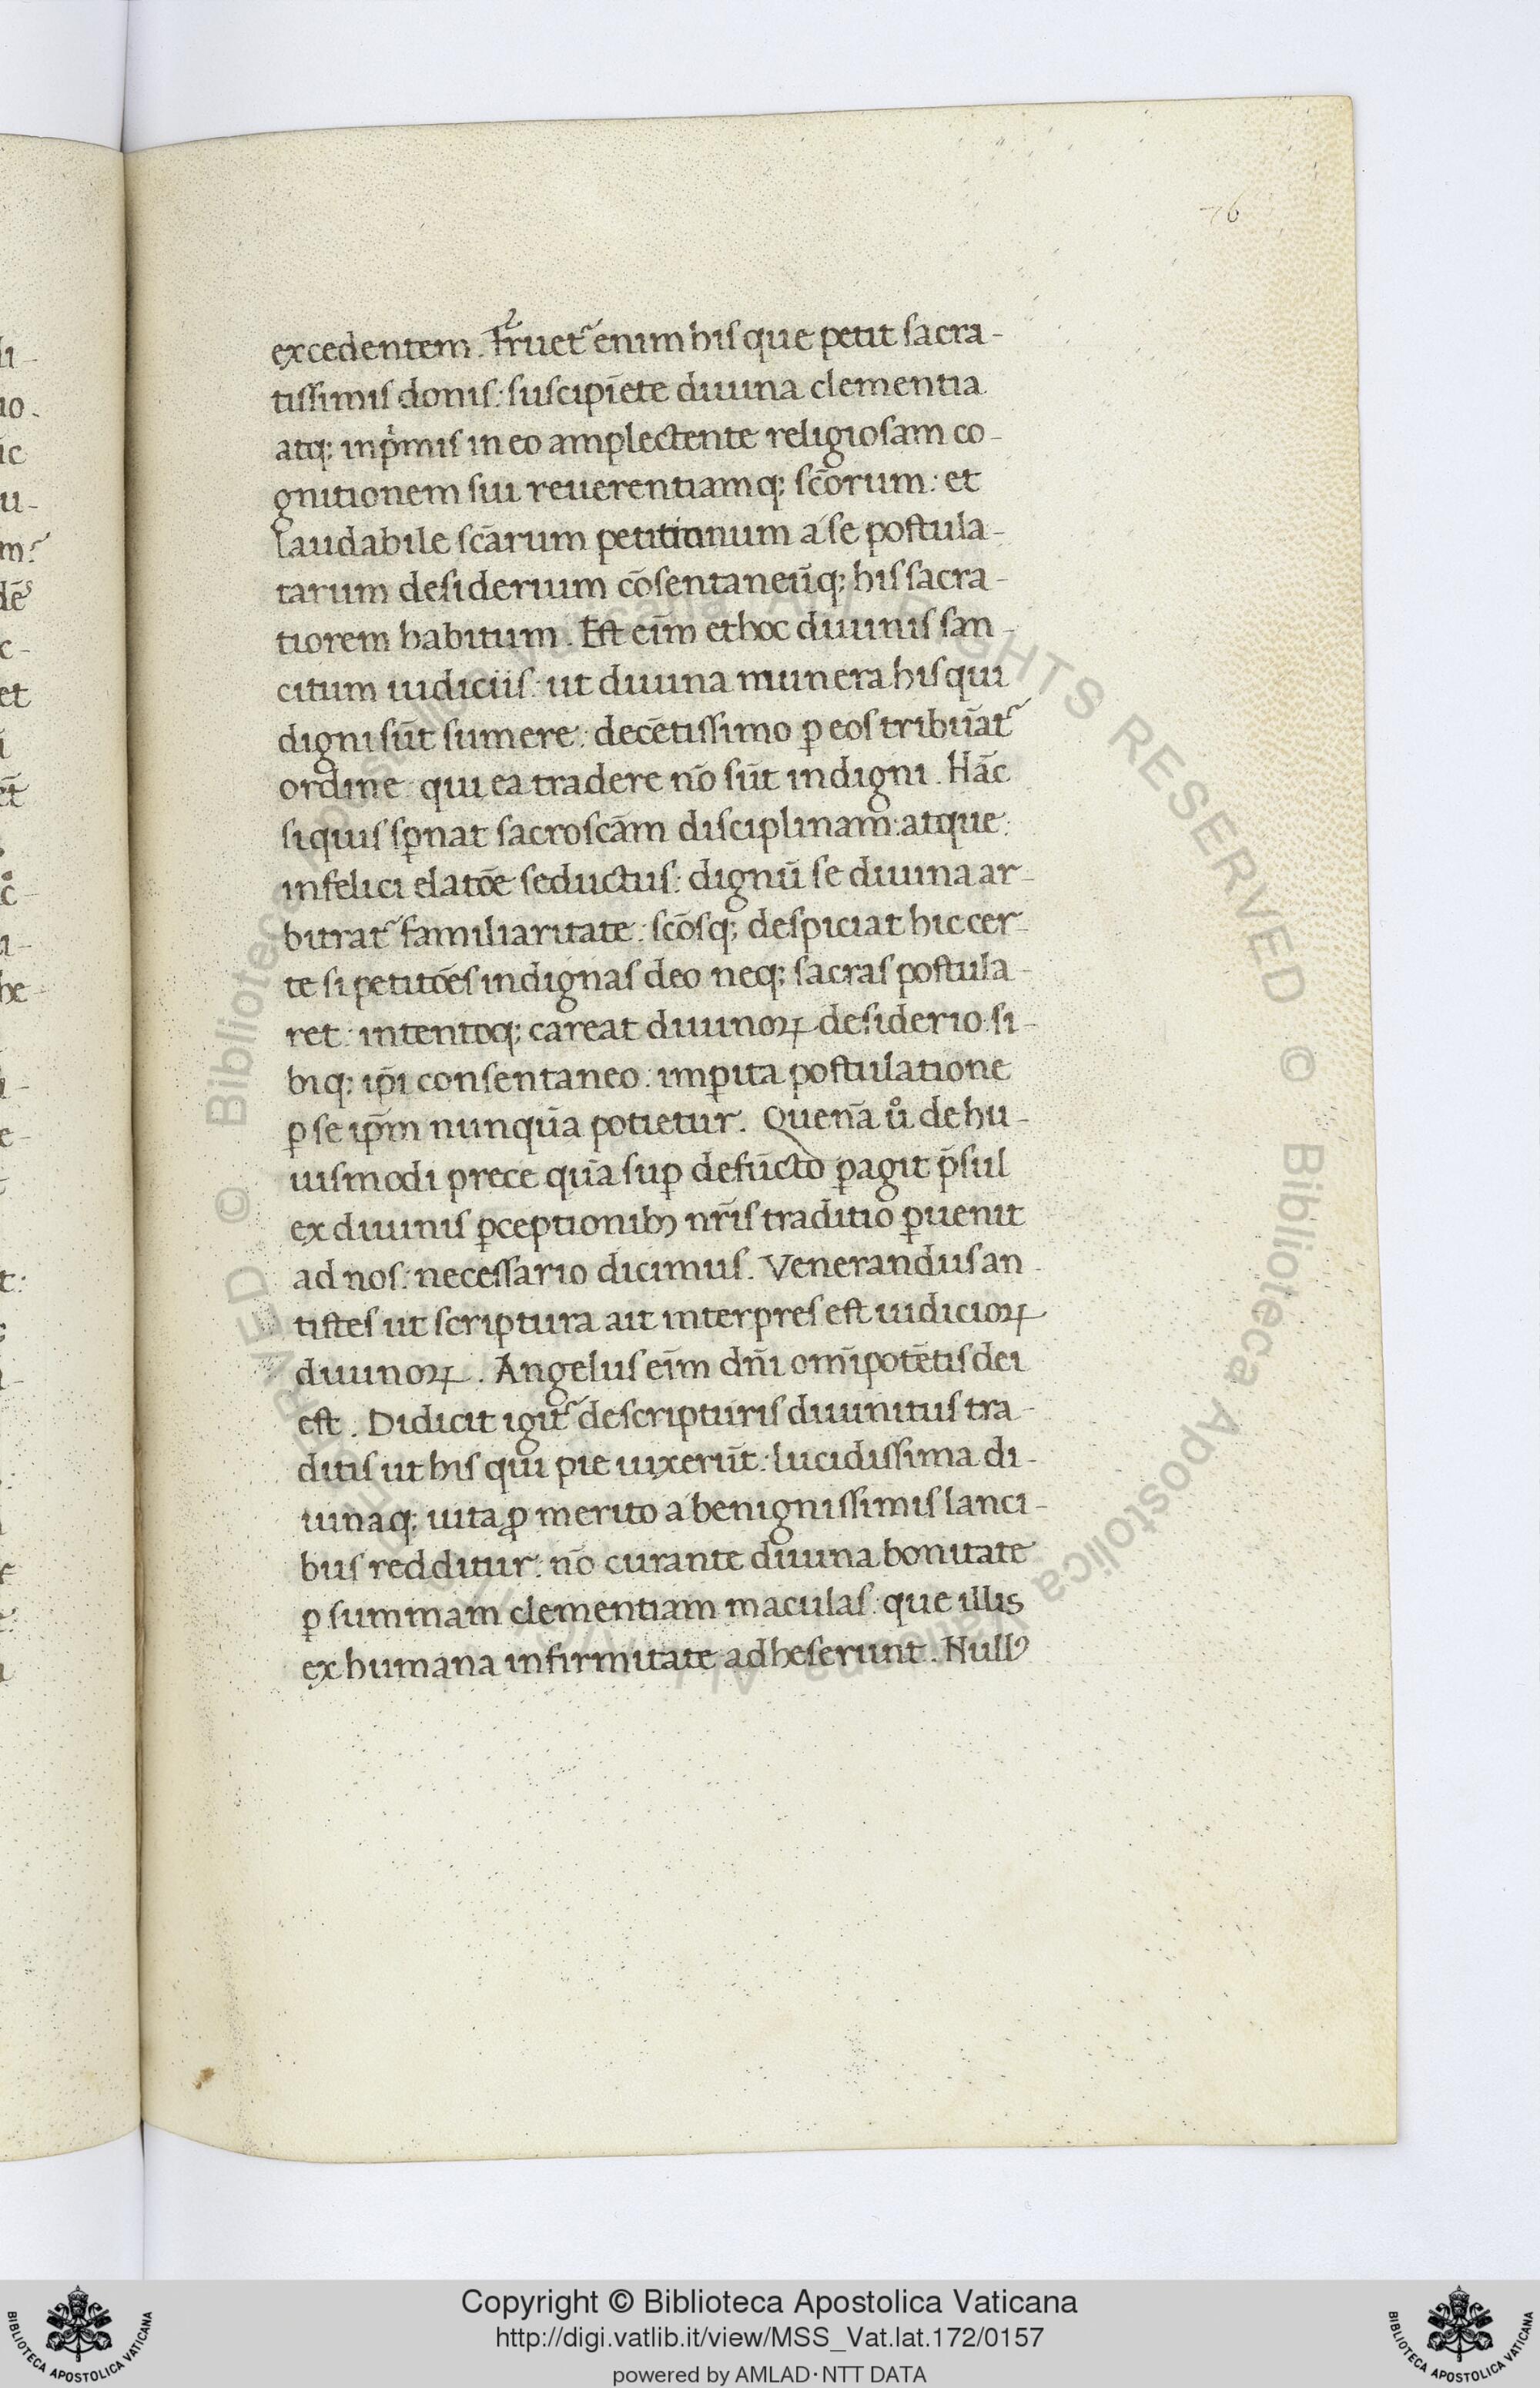 76
excedentem. Fruet᷑ enim his que petit sacra-
tissimis donis: suscipiẽte diuina clementia
atq; inpͥmis in eo amplectente religiosam co-
gnitionem sui reuerentiamq; sc̃orum: et
laudabile sc̃arum petitionum a se postula-
tarum desiderium cõsentaneũq; his sacra-
tiorem habitum. Est eĩm et hoc diuinis san-
citum iudiciis: ut diuina munera his qui
digni sũt sumere: decẽtissimo ꝑ eos tribũat᷑
ordine: qui ea tradere nõ sũt indigni. Hãc
si quis sꝑnat sacroscãm disciplinam: atque
infelici elatõe seductus: dignũ se diuina ar-
bitrat᷑ familiaritate: sc̃osq; despiciat hic cer-
te si petitões indignas deo neq; sacras postula-
ret: intentoq; careat diuinoꝝ desiderio: si-
biq; ip̃i consentaneo: imꝑita postulatione
ꝑ se ip̃m nunquã potietur. Quenã uͦ de hu-
iusmodi prece quã suꝑ defũcto ꝑagit p̃sul
ex diuinis ꝑceptionibꝫ nr̃is traditio ꝑuenit
ad nos: necessario dicimus. Venerandus an-
tistes ut scriptura ait interpres est iudicioꝝ
diuinoꝝ. Angelus eĩm dñi omĩpotẽtis dei
est. Didicit igit᷑ de scripturis diuinitus tra-
ditis ut his qui pie uixerũt: lucidissima di-
uinaq; uita ꝓ merito a benignissimis lanci-
bus redditur: nõ curante diuina bonitate
ꝑ summam clementiam maculas: que illis
ex humana infirmitate adheserunt. Nullꝰ
Copyright © Biblioteca Apostolica Vaticana
http://digi.vatlib.it/view/MSS_Vat.lat.172/0157
powered by AMLAD·NTT DATA